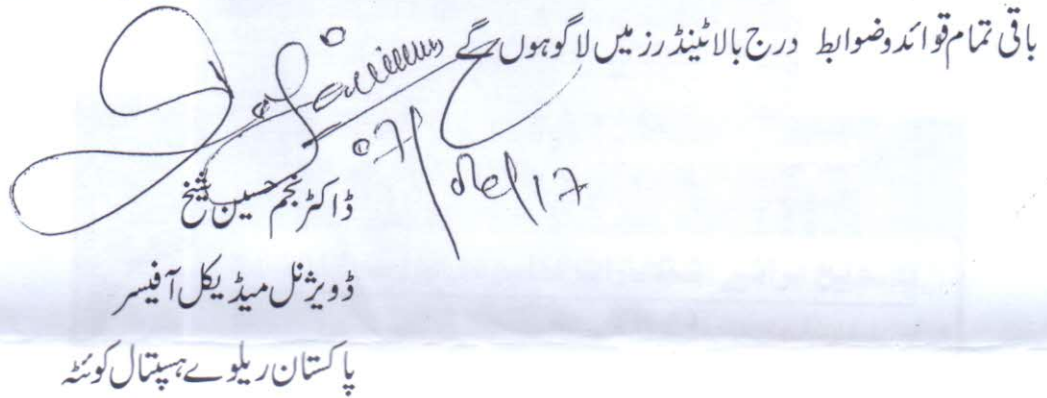 باقی تمام قوائد و ضوابط درج بالا ٹینڈرز میں لاگو ہوں گے
07/06/17
ڈاکٹر نجم حسین شیخ
ڈویژنل میڈیکل آفیسر
پاکستان ریلوے ہسپتال کوئٹہ